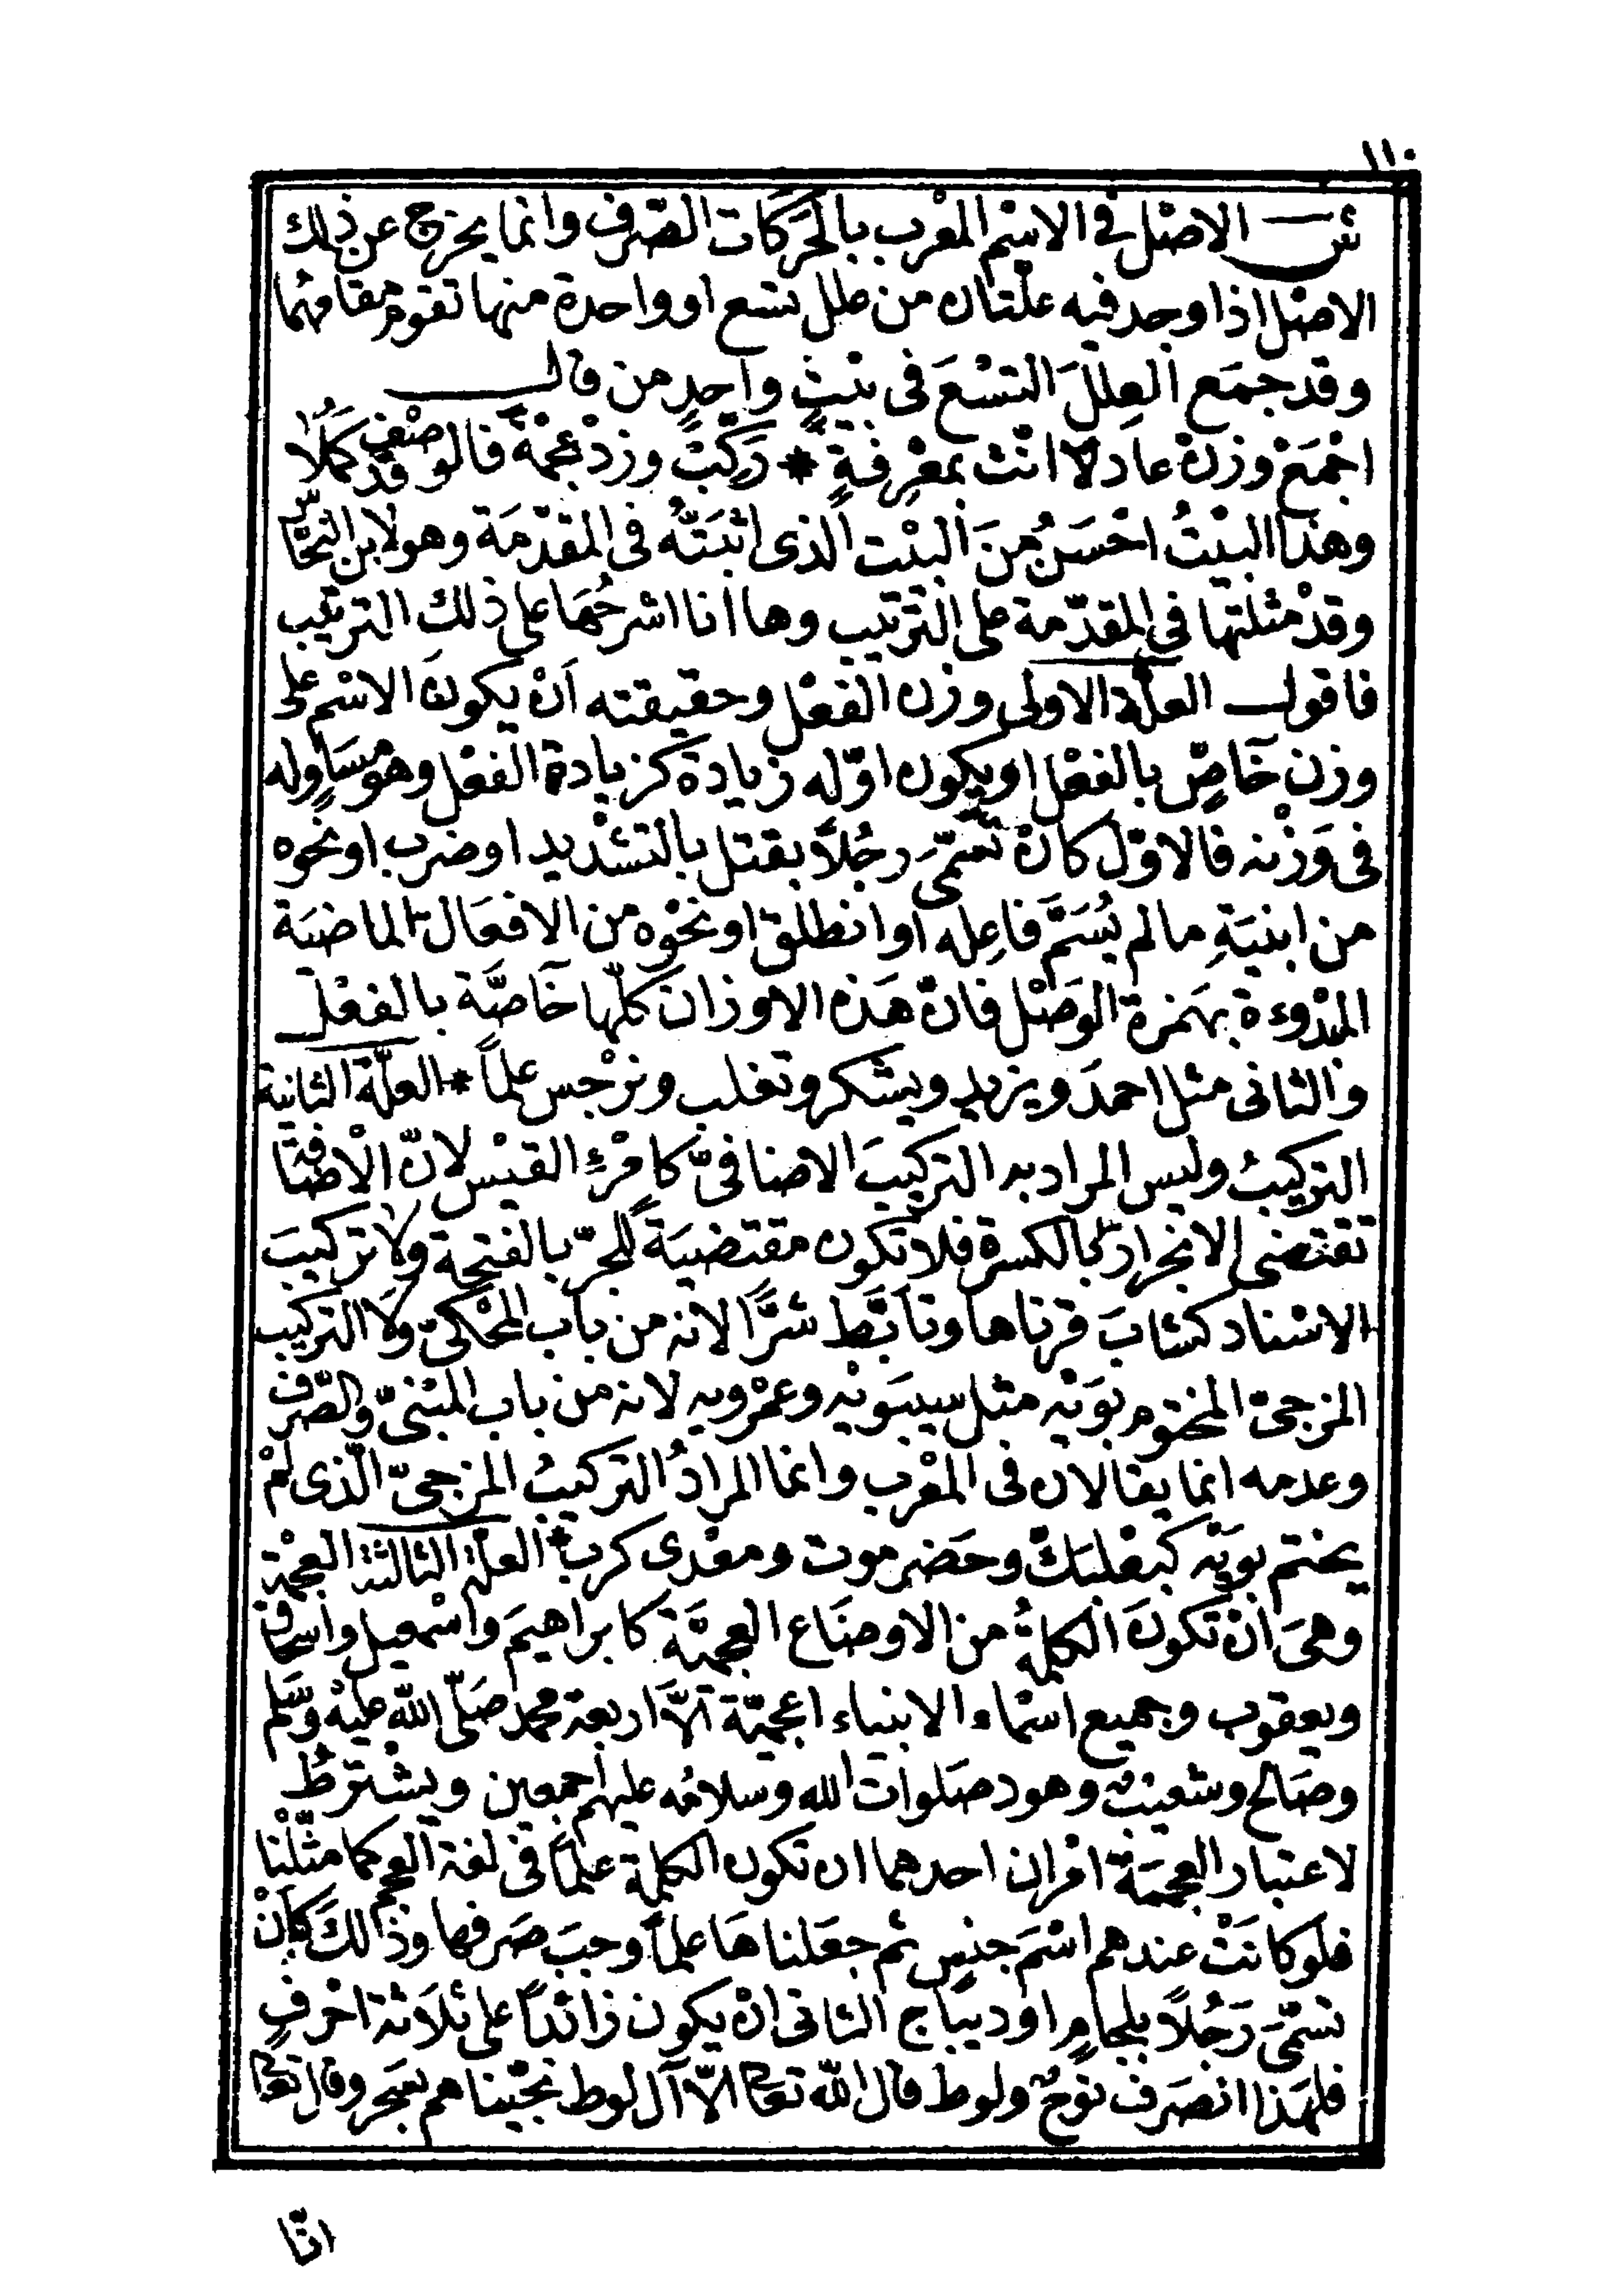 ١١٠
ش الاصْل فى الاسْم المعْرب بالحَرَكات الصّرف وانما يخرج عن ذلك
الاصْل اذا وجد فيه علّتان من علل تسع او واحدة منها تقوم مقامهُما
وقد جمَع العِللَ التسْعَ فى بيْتٍ واحِدٍ من قال
اجْمَعْ وزنْ عادلا انّث بمعْرِفةٍ * رَكّبْ وزدْ عجْمةً فالوصْف قد كَمُلا
وهذا البيْتُ احْسَنُ منَ البيْت الذى اثبَتّهُ فى المقدّمَة وهو لابن النحّاس
وقدْ مثلتها فى المقدّمة على الترْتيب وها انا اشرحُهَا على ذلك الترتيب
فاقول العلّة الاولى وزن الفعْل وحقيقته اَنْ يكونَ الاسْم على
وزن خَاصّ بالفعْل او يكون اوّله زيادة كزيادة الفعْل وهو مسَاوٍ له
فى وَزْنه فالاوّل كانْ تسَمّىَ رجُلاً بقتل بالتشْديد او ضرب او نحوه
من ابنيَةِ ما لم يُسَمَّ فاعِله او انطلق او نحْوه من الافعَال الماضيَة
المبْدوءة بهَمزة الوَصْل فانّ هَذه الاوزان كلّها خَاصَّة بالفعْل
والثانى مثل احمدَ ويزيد ويشكر وتغلب ونرْجس علماً * العلّة الثانية
التركيبُ وليس المراد به التركيبَ الاضافىّ كامْرئِ القيْس لانّ الْاضَافة
تقتضى الانجرار بالكسرة فلا تكون مقتضيَةً للجرّ بالفتحة ولا تركيبَ
الاسْناد كشابَ قرناها وتأبَّط شرًّا لانه من باب المحْكىّ ولَا التركيب
المزجىّ المختوم بوَيْه مثل سيبَوَيْه وعمْرويه لانه من باب المبْنىّ والصّرف
وعدمه انما يقالان فى المعْرب وانما المرادُ التركيبُ المزجىّ الّذى لمْ
يختم بوَيْه كبعْلبَكّ وحَضرموت ومعْدى كرب * العلّة الثالثة العجْمة
وهىَ انْ تكونَ الكلمةُ من الاوضَاع العجميَّة كابراهيمَ واسْمعيل واسحاق
ويعقوب وجميع اسْماء الانبياء اعجميّة الّا اربعة محمد صَلّى اللّه عليْه وسَّلم
وصَالح وشعيْبٌ وهود صَلوات الله وسلامُه عليهم اجمعين ويشترطُ
لاعتبار العجمَة امْران احدهما ان تكون الكلمة علماً فى لغة العجم كما مثّلْنا
فلو كانَتْ عندهم اسْمَ جنسٍ ثم جعَلناهَا علماً وجبَ صَرفها وذالكَ كاَنْ
تسَمّىَ رَجُلاً بلجامٍ او ديبَاج الثانى انْ يكون زائداً على ثلَاثة احْرفٍ
فلهَذا انصَرف نوحٌ ولوط قال اللّه تعالى الّا آل لوط نجّيْناهم بسَحر وقال تعالى
انّا